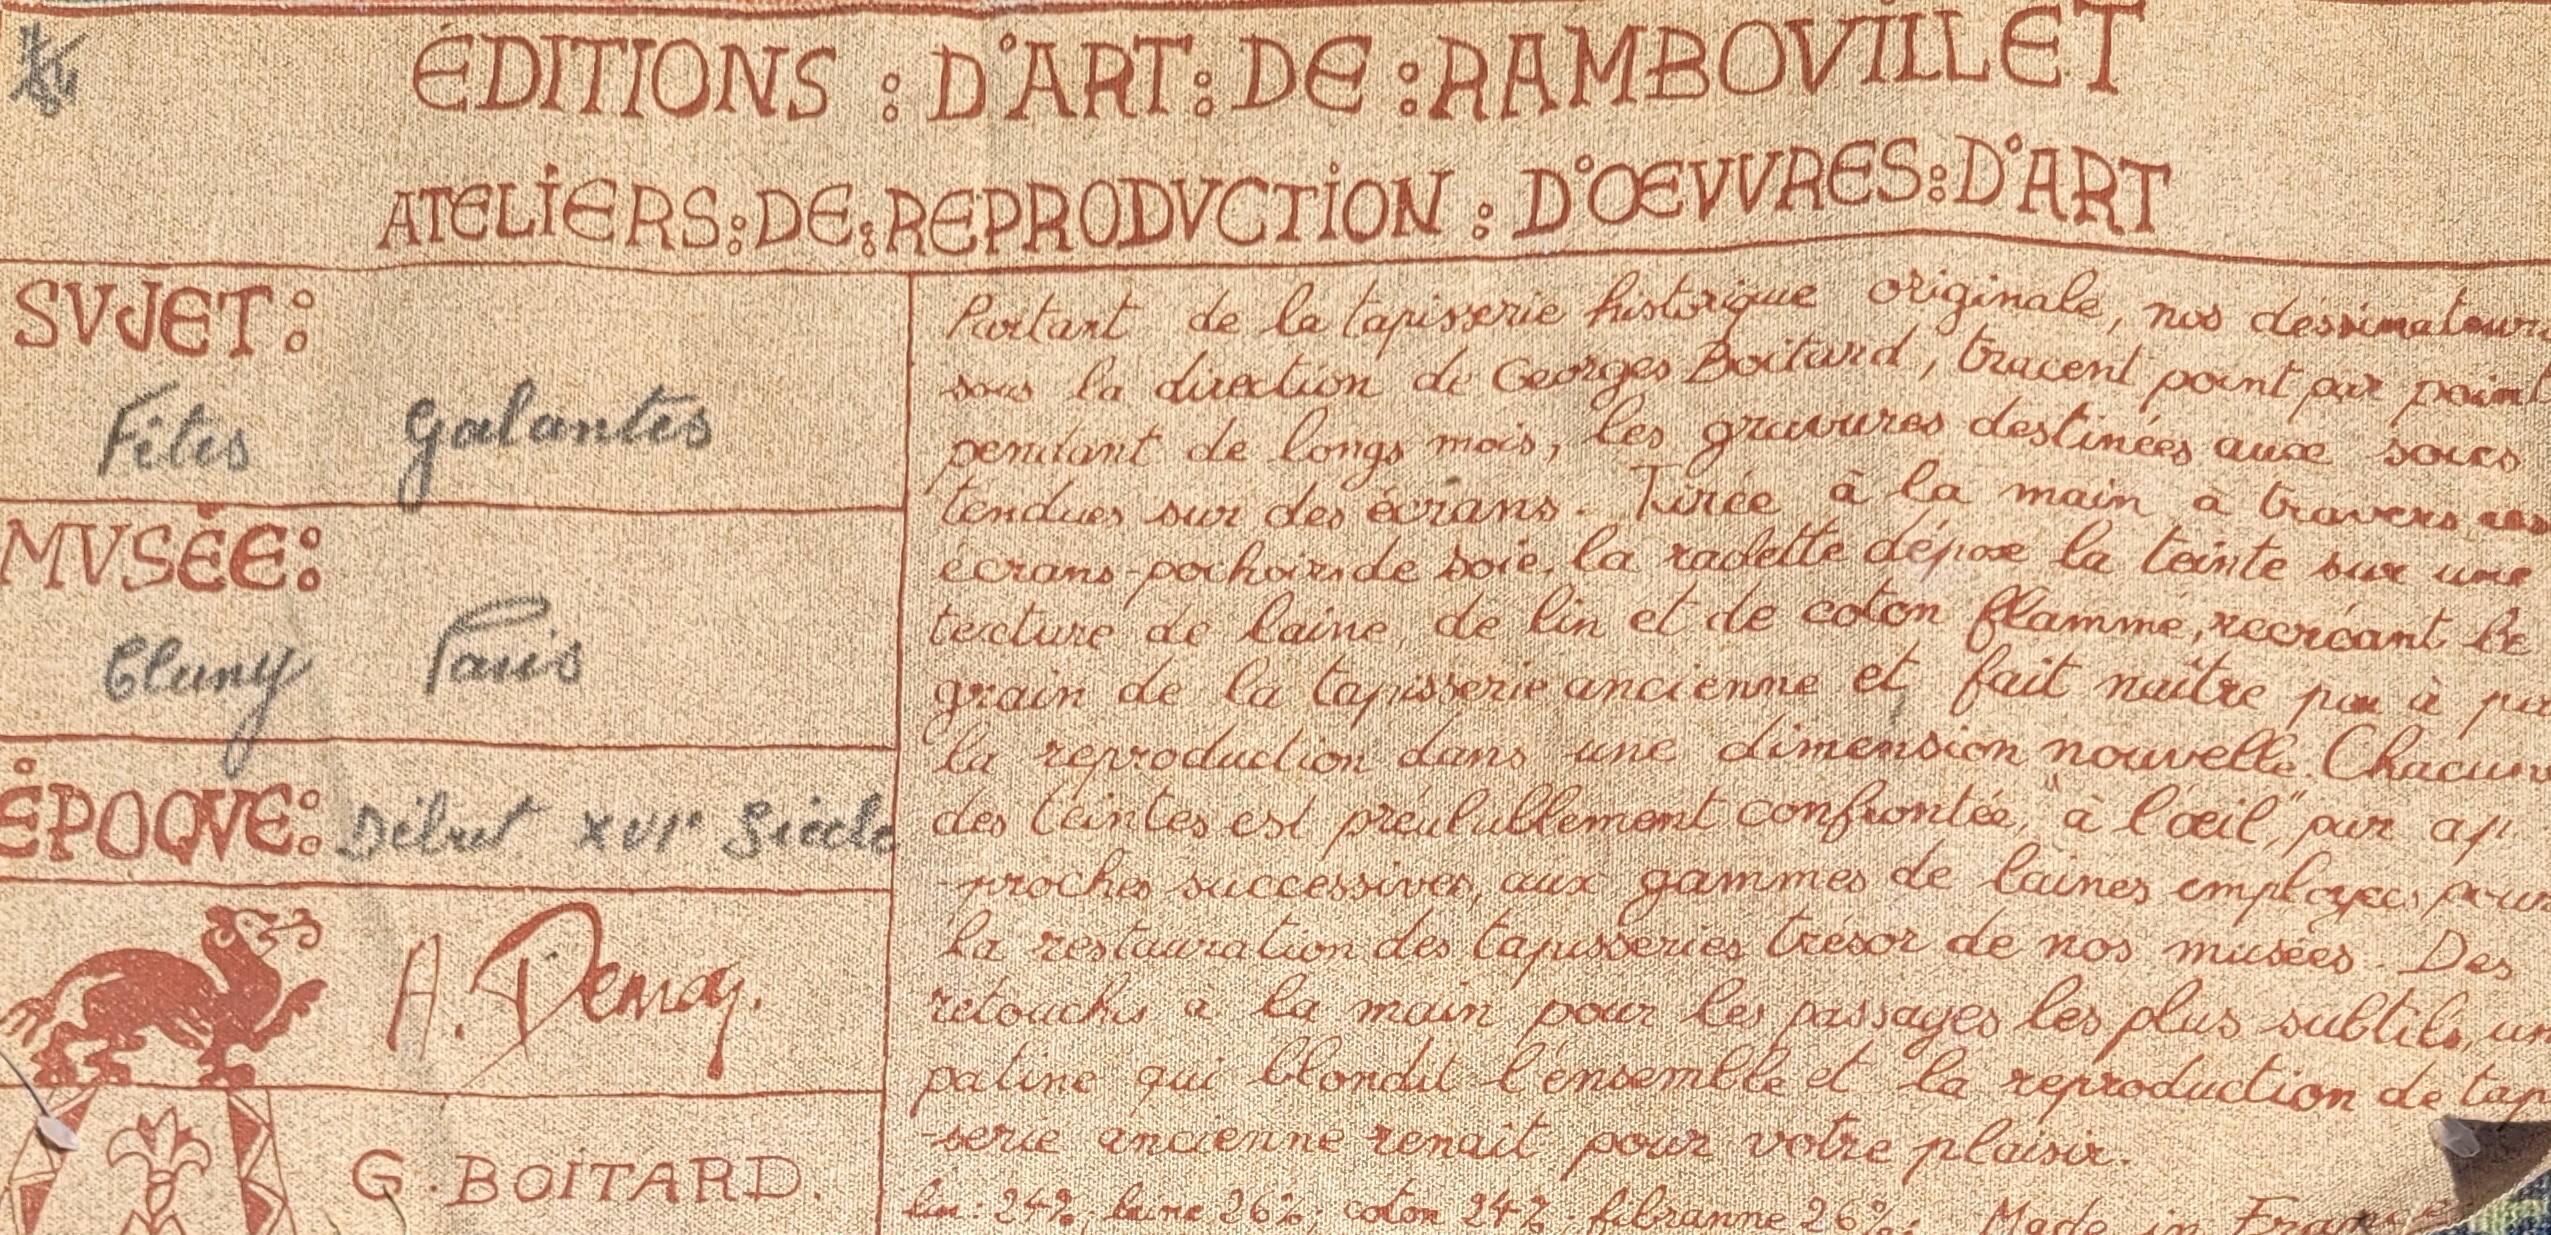 ÉDITIONS : D'ART : DE : RAMBOVILLET
ATELIERS : DE : REPRODVCTION : D'ŒVVRES : D'ART
SVJET :
Fêtes galantes
MVSÉE :
Cluny Paris
ÉPOQVE : Début XVIe Siècle
A. Demoy.
G. BOITARD.
Partant de la tapisserie historique originale, nos dessinateurs
sous la direction de Georges Boitard, tracent point par point
pendant de longs mois, les gravures destinées aux soies
tendues sur des écrans. Tirée à la main à travers ces
écrans-pochoirs de soie, la raclette dépose la teinte sur une
texture de laine, de lin et de coton flammé, recréant le
grain de la tapisserie ancienne et, fait naître peu à peu
la reproduction dans une dimension nouvelle. Chacune
des teintes est préalablement confrontée, "à l'œil", par ap
-proches successives, aux gammes de laines employées pour
la restauration des tapisseries trésor de nos musées. Des
retouches à la main pour les passages les plus subtils, un
patine qui blondit l'ensemble et la reproduction de tap
-serie ancienne renaît pour votre plaisir.
lin : 24%, laine 26%; coton 24%; fibranne 26%. Made in France